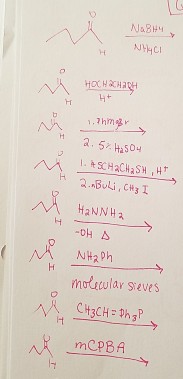 O
NaBH4
H
NH4Cl
O
HOCH2CH2OH
H
H+
O
1. PhMgBr
H
2. 5% H2SO4
O
1. HSCH2CH2SH, H+
H
2. nBuLi, CH3I
O
H2NNH2
H
-OH Δ
O
NH2Ph
H
molecular sieves
O
CH3CH=Ph3P
H
O
mCPBA
H